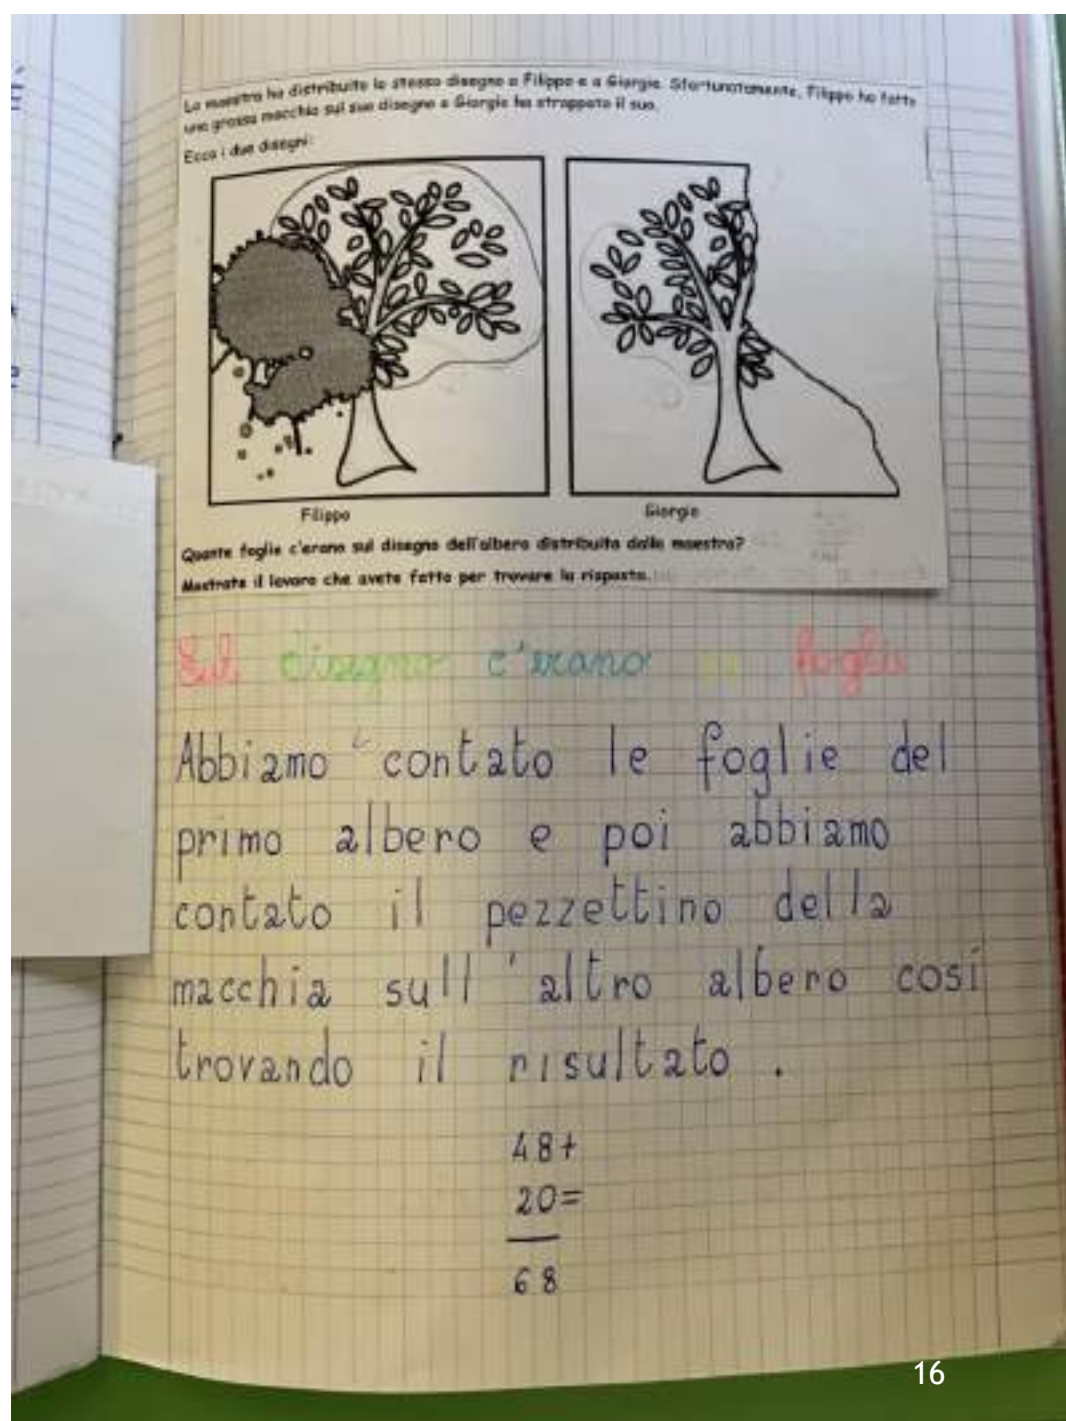 La maestra ha distribuito lo stesso disegno a Filippo e a Giorgio. Sfortunatamente, Filippo ha fatto
una grossa macchia sul suo disegno e Giorgio ha strappato il suo.
Ecco i due disegni:
Filippo
Giorgio
Quante foglie c'erano sul disegno dell'albero distribuito dalla maestra?
Mostrate il lavoro che avete fatto per trovare la risposta.
Sul disegno c'erano foglie
Abbiamo contato le foglie del
primo albero e poi abbiamo
contato il pezzettino della
macchia sull'altro albero così
trovando il risultato.
48+
20=
68
16